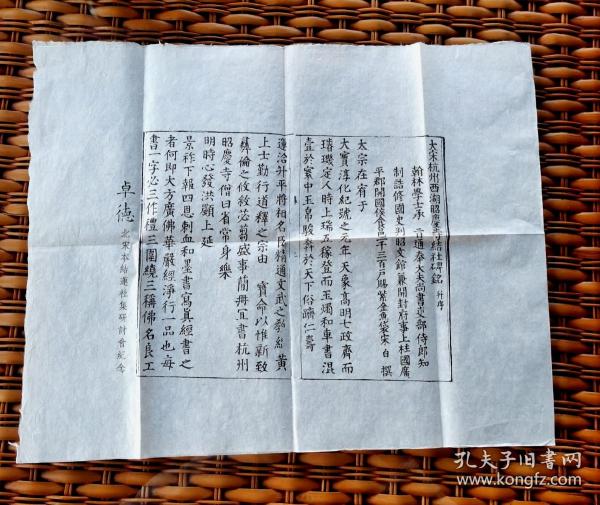 大宋杭州西湖昭慶寺結社碑銘 并序
翰林學士承 旨通奉大夫尚書吏部侍郎知
制誥修國史判昭文館兼開封府事上柱國廣
平郡開國侯食邑一千三百戶賜紫金魚袋宋白 撰
太宗在宥于
大寶淳化紀號之元年天象高明七政齊而
璿璣定人時上瑞五稼登而玉燭和車書混
壹於寰中玉帛駿奔於天下俗躋仁壽
運洽升平將相名臣精通文武之教 黃
上士勤行道釋之宗由 寶命以惟新致
彝倫之攸敘苾蒭盛事簡冊宜書杭州
昭慶寺僧曰省常身樂
明時心發洪願上延
景祚下報四恩刺血和墨書寫真經書之
者何即大方廣佛華嚴經淨行一品也每
書一字必三作禮三圍繞三稱佛名良工
卓德 北宋本結蓮社集研討會紀念
孔夫子旧书网
kongfz.com